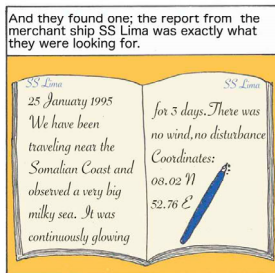 And they found one; the report from the
merchant ship SS Lima was exactly what
they were looking for.
SS Lima
25 January 1995
We have been
traveling near the
Somalian Coast and
observed a very big
milky sea. It was
continuously glowing
SS Lima
for 3 days. There was
no wind, no disturbance
Coordinates:
08.02 N
52.76 E